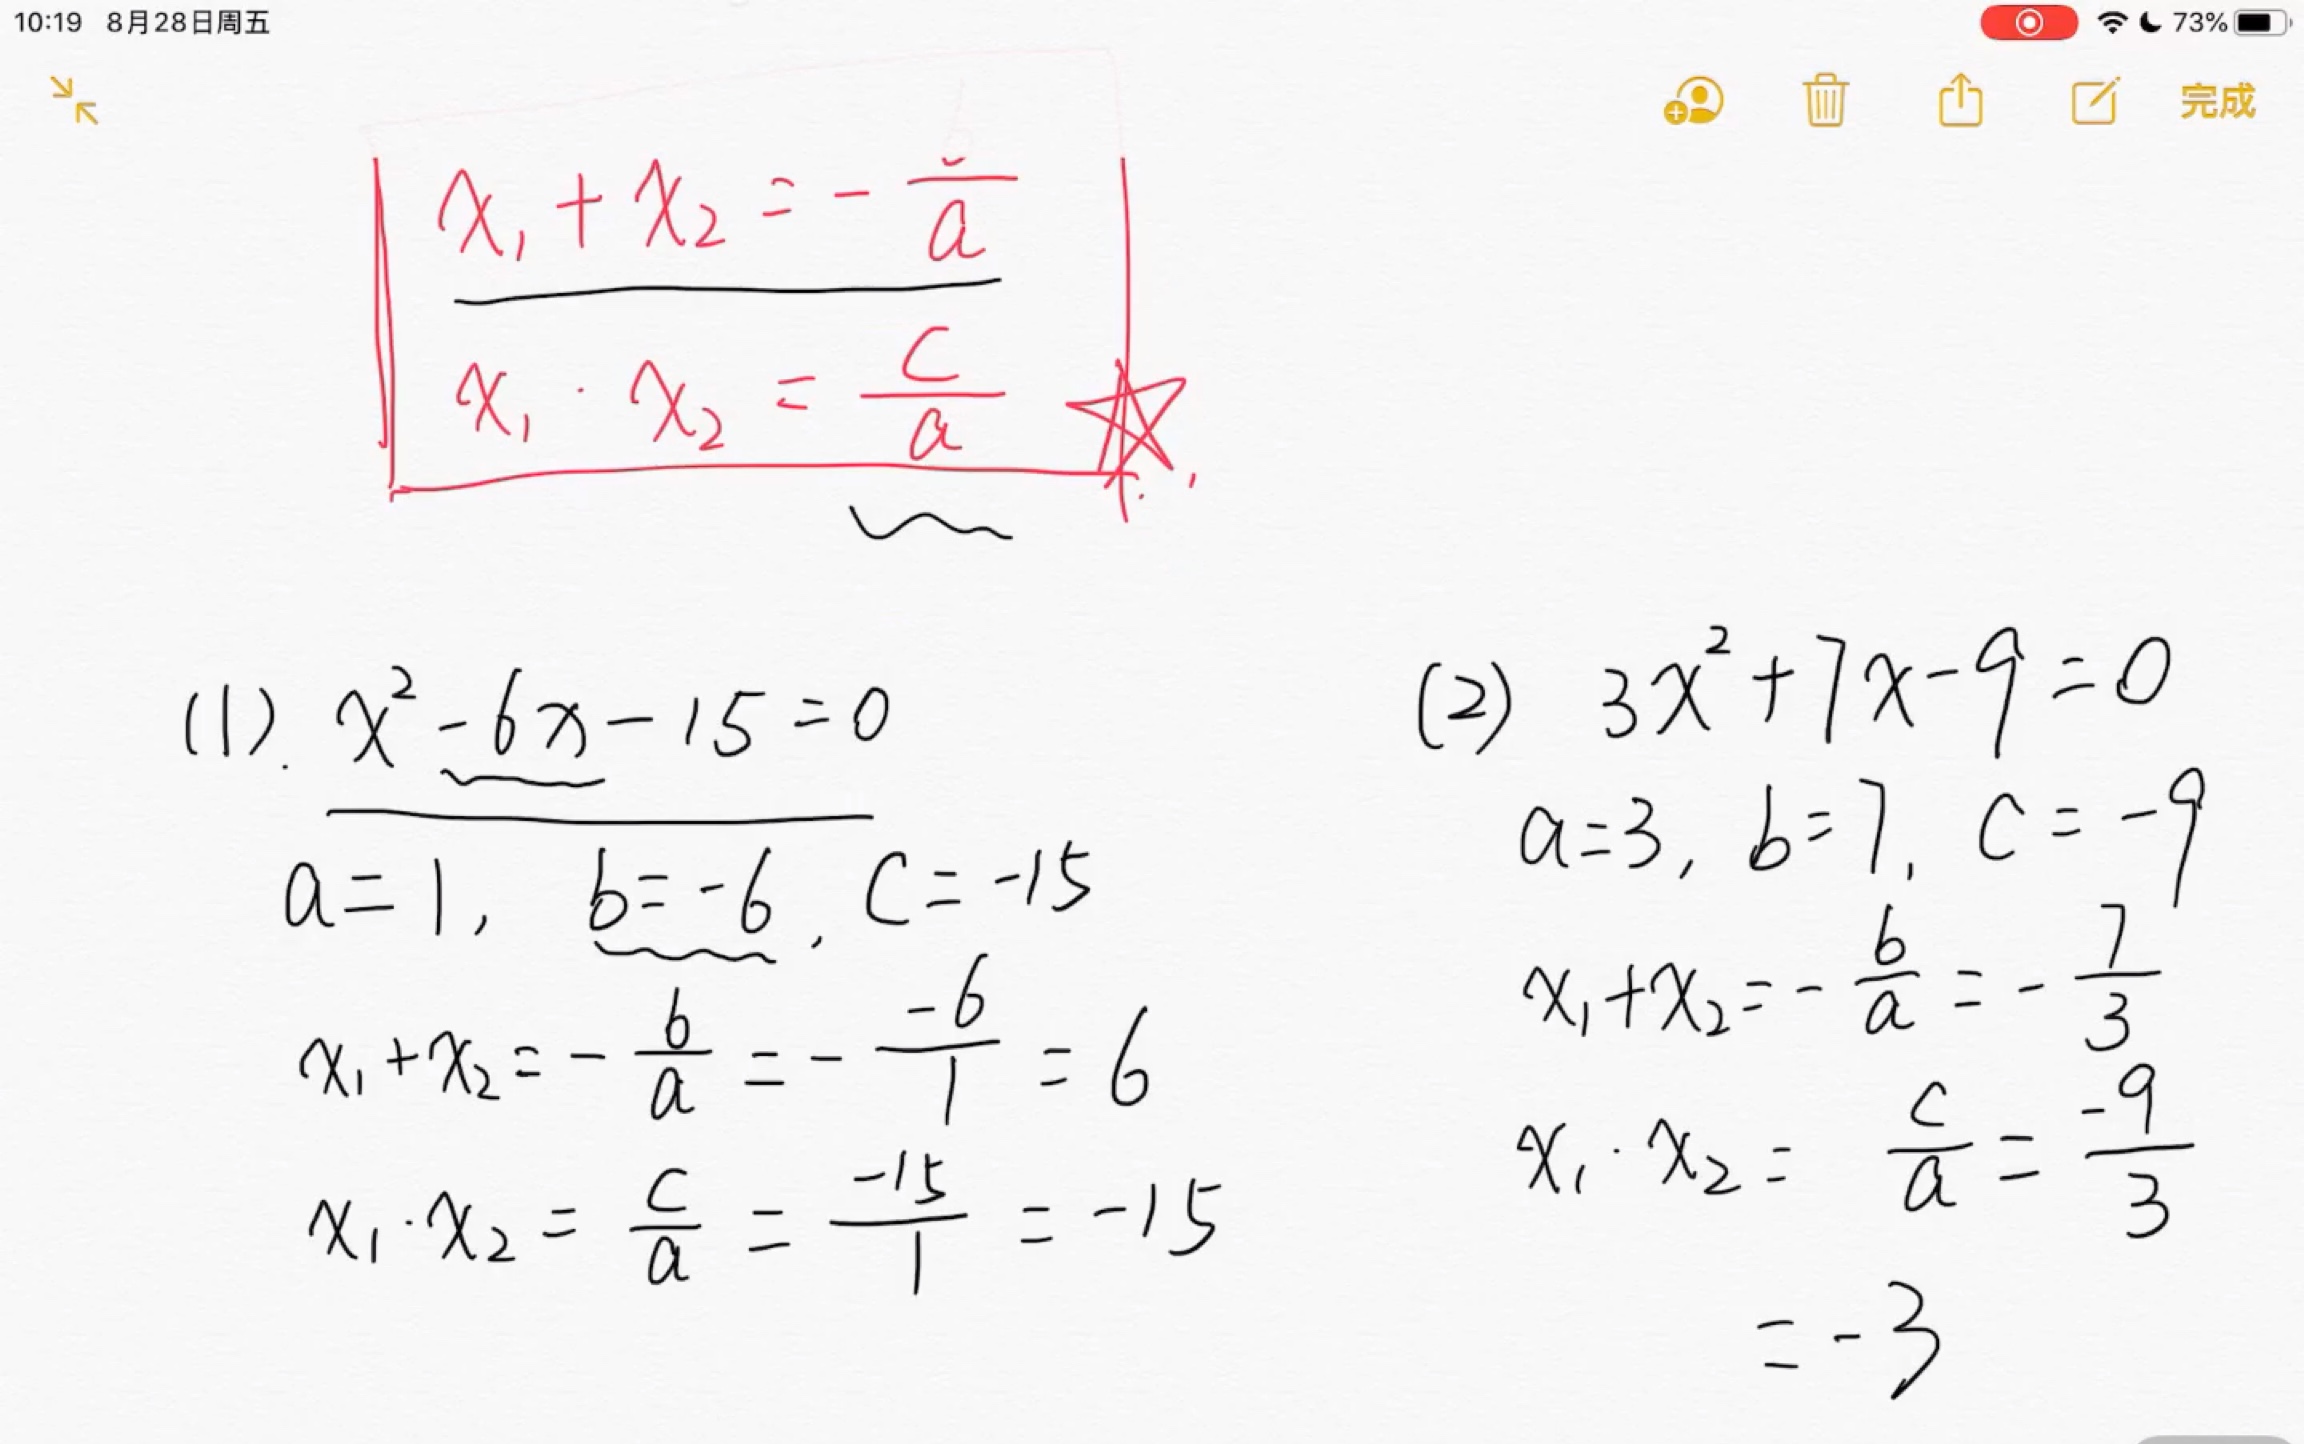 10:19 8月28日周五
73%
完成
x₁ + x₂ = - b/a
x₁ · x₂ = c/a
(1). x² - 6x - 15 = 0
a = 1, b = -6, c = -15
x₁ + x₂ = - b/a = - -6/1 = 6
x₁ · x₂ = c/a = -15/1 = -15
(2) 3x² + 7x - 9 = 0
a = 3, b = 7, c = -9
x₁ + x₂ = - b/a = - 7/3
x₁ · x₂ = c/a = -9/3
= -3